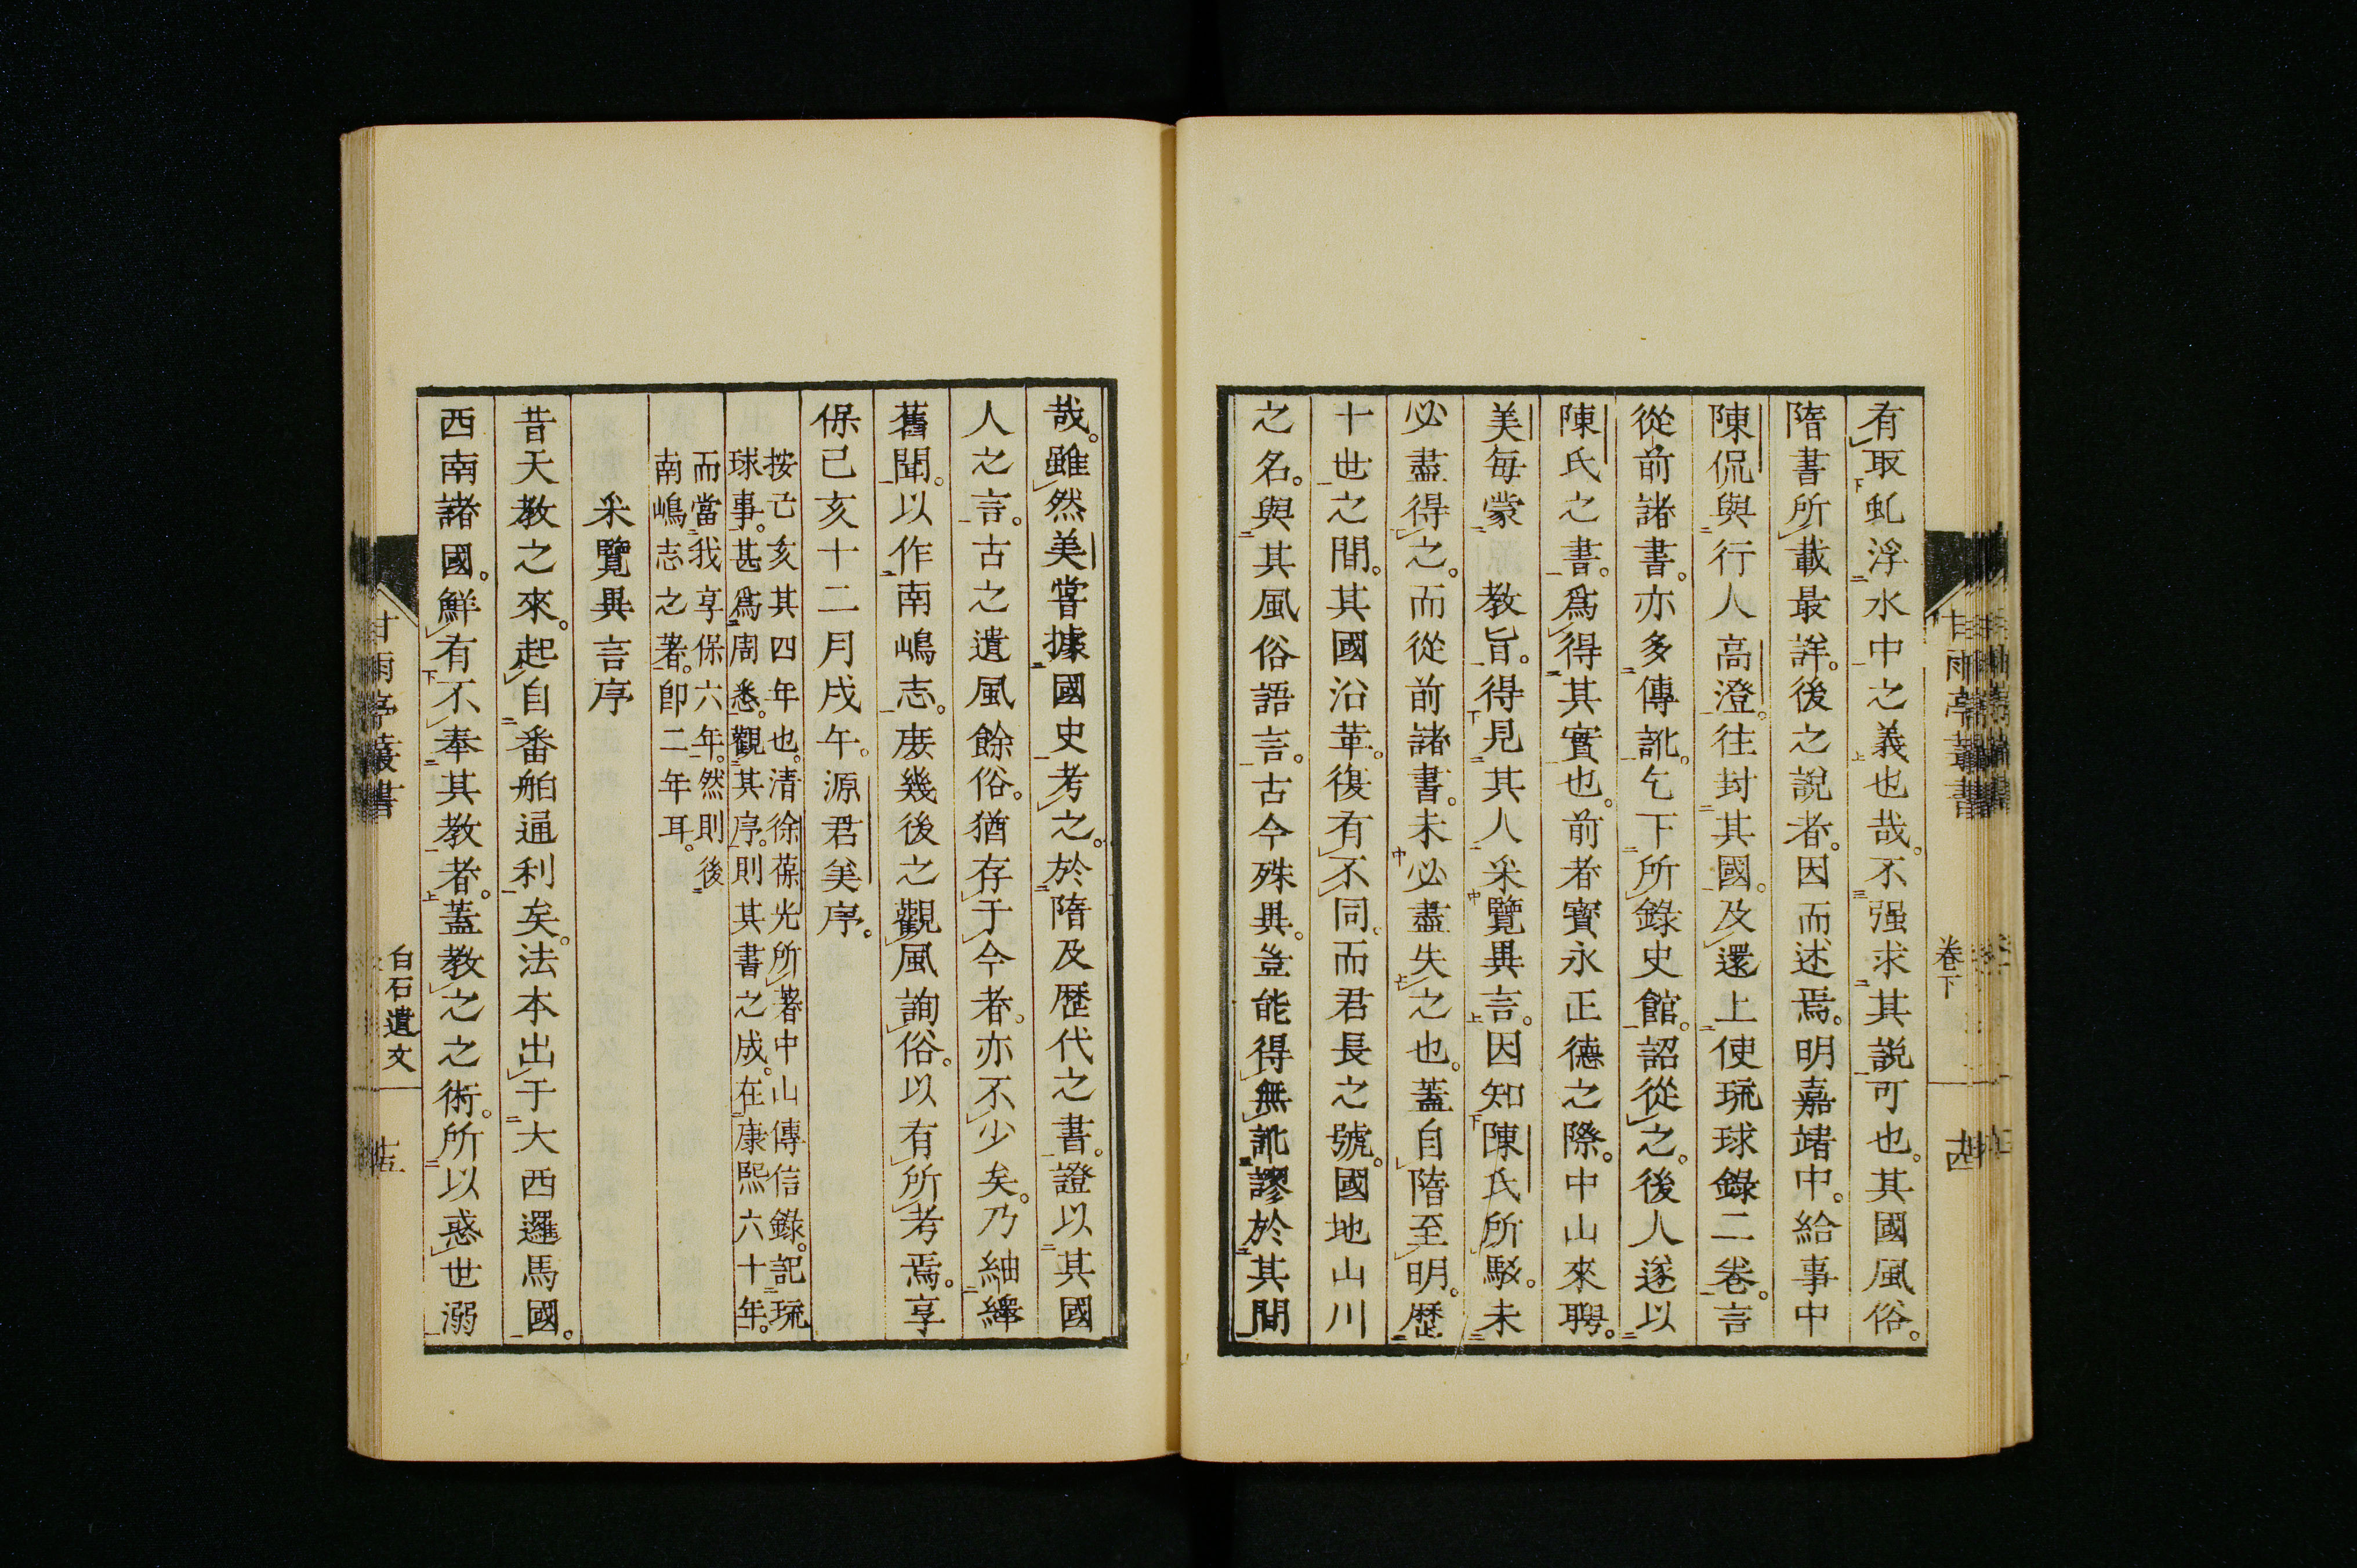 有取虬浮水中之義也哉。不强求其説可也。其國風俗。
隋書所載最詳。後之説者。因而述焉。明嘉靖中。給事中
陳侃與行人高澄。往封其國。及還上使琉球錄二卷。言
從前諸書。亦多傳訛。乞下所錄史館。詔從之。後人遂以
陳氏之書。爲得其實也。前者寶永正德之際。中山來聘。
美每蒙　教旨。得見其人采覽異言。因知陳氏所駁。未
必盡得之。而從前諸書。未必盡失之也。蓋自隋至明。歷
十世之間。其國沿革。復有不同。而君長之號。國地山川
之名。與其風俗語言。古今殊異。豈能得無訛謬於其間
卷下
十四
哉。雖然美嘗據國史考之。於隋及歷代之書。證以其國
人之言。古之遺風餘俗。猶存于今者。亦不少矣。乃紬繹
舊聞。以作南嶋志。庶幾後之觀風詢俗。以有所考焉。享
保己亥十二月戊午。源君美序。
按己亥其四年也。清徐葆光所著中山傳信錄。記琉
球事。甚爲周悉。觀其序。則其書之成。在康熙六十年。
而當我享保六年。然則後
南嶋志之著。卽二年耳。
采覽異言序
昔天教之來。起自番舶通利矣。法本出于大西邏馬國。
西南諸國。鮮有不奉其教者。蓋教之之術。所以惑世溺
甘雨亭叢書
白石遺文